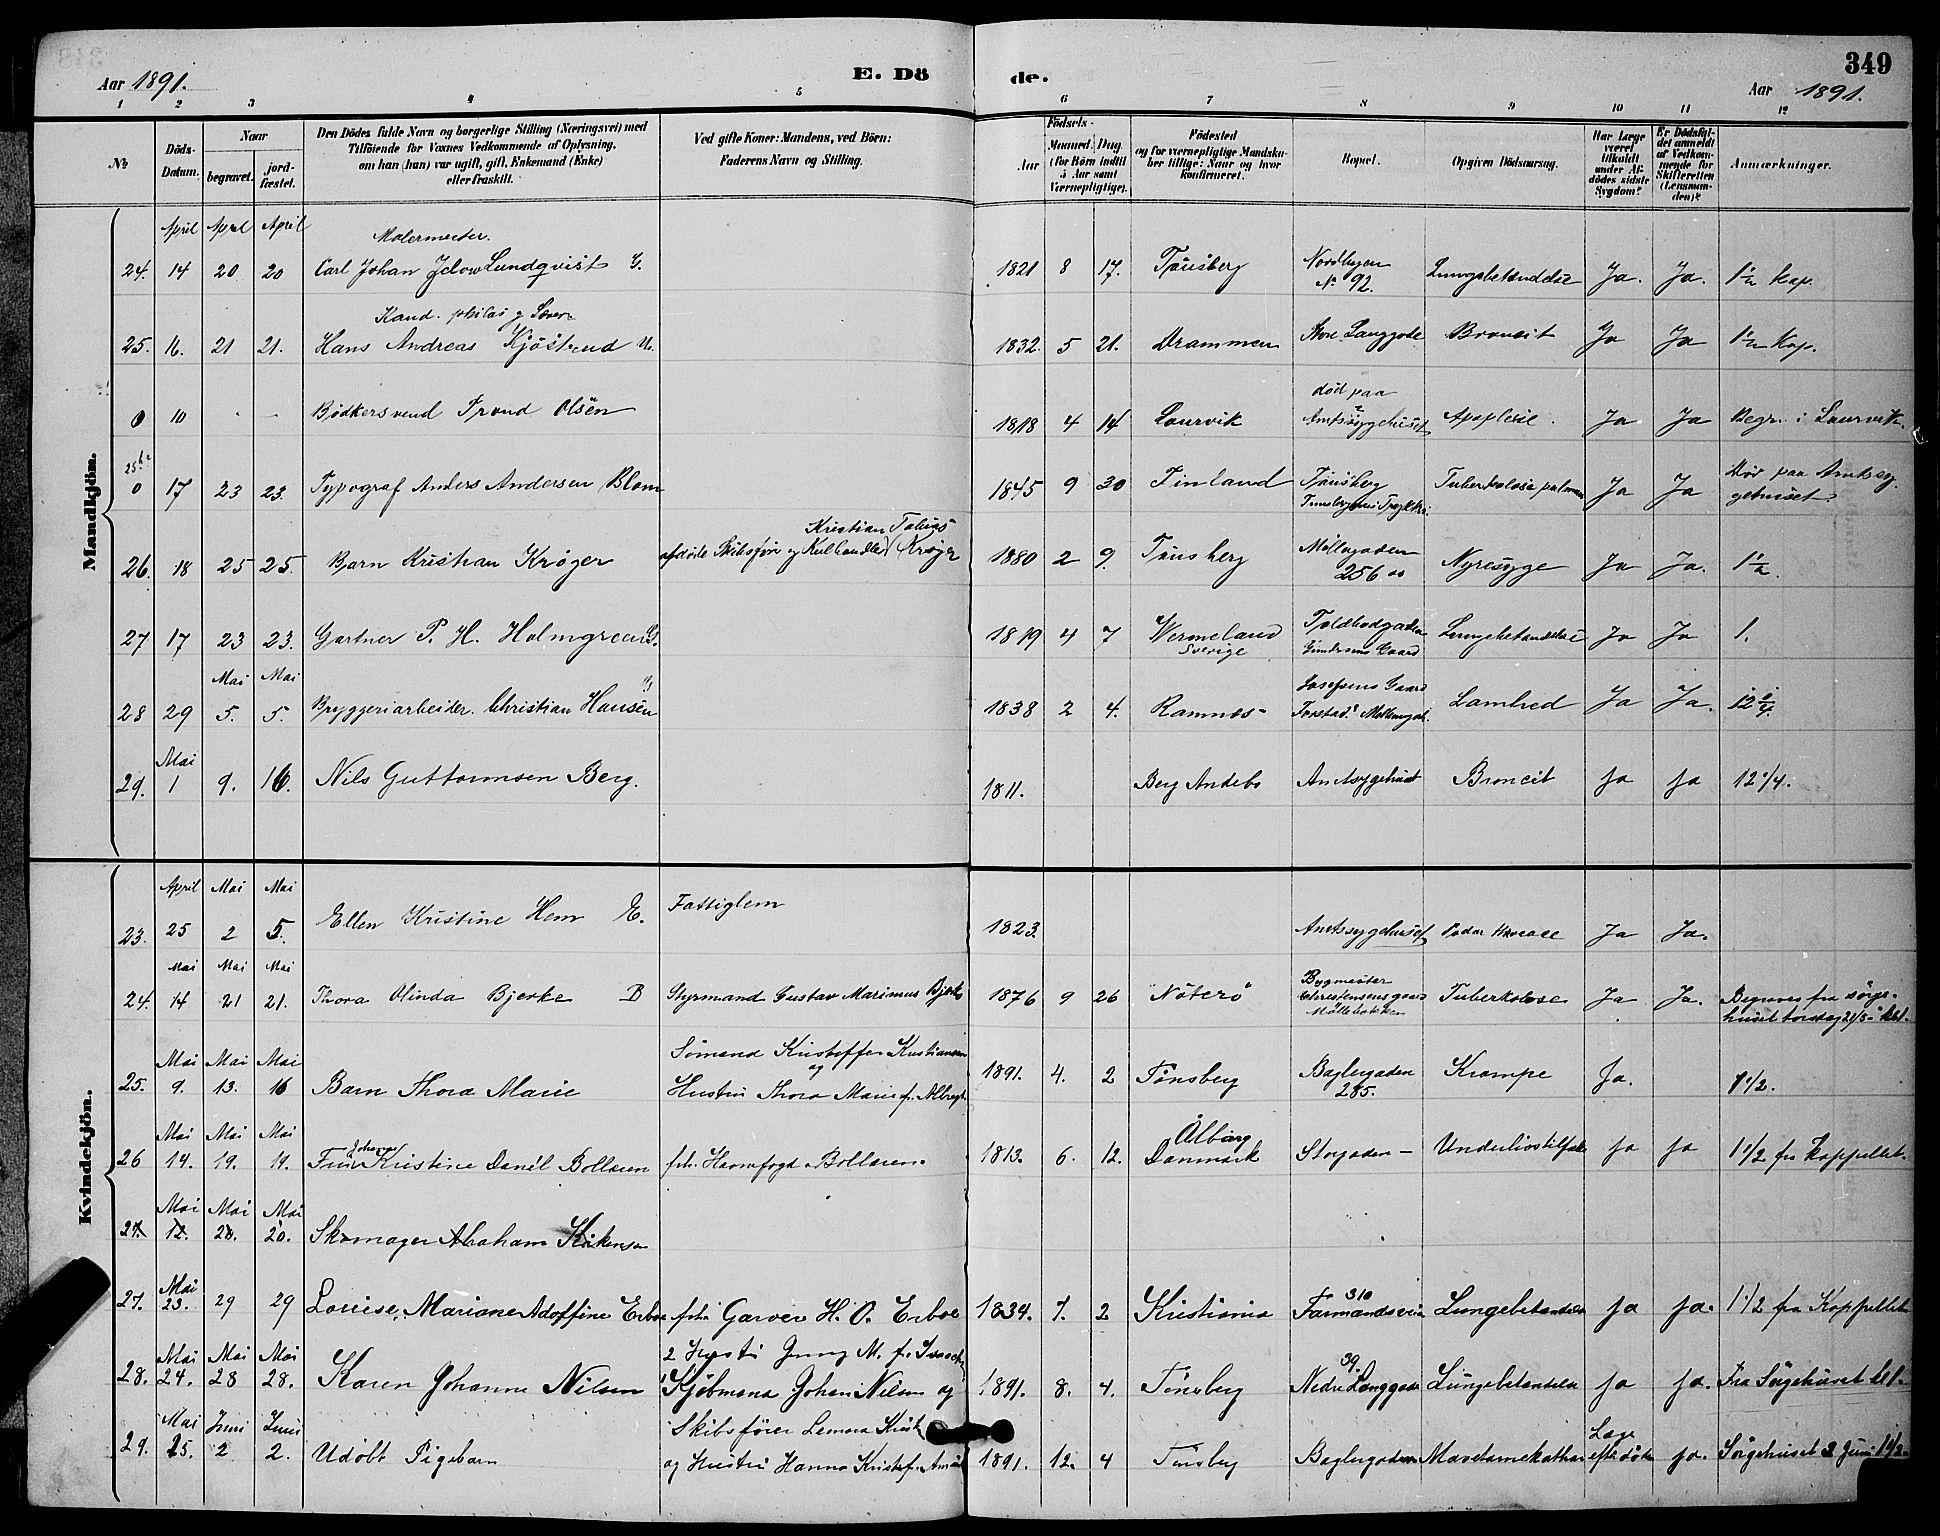 349
Aar 1891.
E. Dö
de.
Aar 1891.
1 2 3 4 5 6 7 8 9 10 11 12
No
Döds-Datum.
Naar
begravet.
jord-fæstet.
Den Dödes fulde Navn og borgerlige Stilling (Næringsvei) med
Tilföiende for Voxnes Vedkommende af Oplysning,
om han (hun) var ugift, gift, Enkemand (Enke)
eller fraskilt.
Ved gifte Koner: Mandens, ved Börn:
Faderens Navn og Stilling.
Födsels-
Aar
Maaned. Dag.
(for Börn indtil
5 Aar samt
Værnepligtige).
Födested
og for værnepligtige Mandska-
ber tillige: Naar og hvor
konfirmeret.
Bopæl.
Opgiven Dödsaarsag.
Har Læge
været
tilkaldt
under Af-
dödes sidste
Sygdom?
Er Dödsfal-
det anmeldt
af Vedkom-
mende for
Skifteretten
(Lensman-
den)?
Anmærkninger.
Mandkjön.
April April April
Malermester.
24. 14 20 20 Carl Johan Lundqvist G. 1821 8 17. Tönsberg Nordbyen No 92. Lungebetændelse Ja. Ja. 1 1/2 Kap.
Kand. philos og Lærer
25. 16. 21 21. Hans Andreas Kjöstrud U. 1832. 5 21. Drammen Store Langgade Broncit Ja Ja 1 1/2 Kap.
0 10 - - Bödkersvend Trond Olsen 1818 4 14 Laurvik död paa Amtssygehuset Apoplexie. Ja Ja Begr. i Laurvik.
0 17 23 23. Typograf Anders Andersen Blom 1845 9 30 Finland Tönsberg Ja Ja Död paa Amtssy
gehuset
26. 18 25 25. Barn Kristian Kröger afdöde Skibsförer og Kulhandler Kristian Tobias Kröger 1880 2 9. Tönsberg Möllegaden 256 Nyresyge Ja Ja. 1 1/2.
27 17 23 23. Gartner P. H. Holmgreen G. 1819 4 7 Wermeland Sverige Toldbodgaden Gaard Lungebetændelse Ja Ja 1.
Mai Mai
28 29 5. 5. Bryggeriarbeider Christian Hansen G 1838 2 4. Ramnes Josefsens Gaard Lamhed Ja Ja. 12
Mai
29. 1 9. 16. Nils Guttormsen Berg. 1811. Berg Andebo Amtsygehuset Broncit ja ja 12 1/4.
Kvindekjön.
April Mai Mai
23. 25 2 5. Ellen Kristine Hem E. Fattiglem 1823. Amtssygehuset Ja Ja.
Mai Mai Mai
24. 14 21 21. Thora Olinda Bjerke B Styrmand Gustav Marinius Bjerke 1876 9 26 Nöterö Bygmester Christensens gaard Möllebakken Tuberkulose Ja Ja. Begraves fra sörge-
huset torsdag 21/5
Mai Mai Mai
25. 9. 13. 16 Barn Thora Marie Sömand Kristoffer Kristiansen og
Hustru Thora Marie f. Albregt. 1891. 4. 2 Tönsberg Baglergaden 285. Krampe Ja. 1 1/2.
Mai Mai Mai
26 14. 19. 19. Fru Johanne Kristine Danél Bollæren fhv. Havnefogd Bollæren 1813. 6. 12. Ålborg Danmark Storgaden - ja ja 1 1/2 fra Kappellet.
Mai Mai Mai
27. 12. 20. 20. Skomager Abraham
Mai
27. 23. 29 29 Louise, Mariane Adolfine Erboe fhv. Garver H. O. Erboe 1834. 7. 2 Kristiania 310 Farmandsveien Lungebetændelse ja ja. 1 1/2 fra Kappellet
Mai Mai Mai
28. 24. 28 28. Karen Johanne Nilsen Kjöbmand Johan Nilsen og 1891. 8. 4. Tönsberg 39. Nedre Langgade Lungebetændelse ja ja. Fra Sörgehuset kl 1.
Mai Juni Juni
29. 25. 2 2. Udöbt Pigebarn Skibsförer
og Hustru Hanna 1891. 12. 4 Tönsberg Baglergaden Mavetarmekatharr Læge efter döde ja. Sörgehuset 2 Juni 1 1/2.